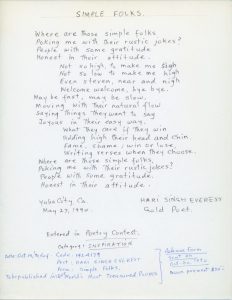 SIMPLE FOLKS.
Where are those simple folks
Poking me with their rustic jokes?
People with some gratitude
Honest in their attitude.
Not so high, to make me sigh
Not so low to make me high
Even steven, near and nigh
Welcome welcome, bye bye.
May be fast, may be slow.
Moving with their natural flow
Saying things they want to say
Joyous in their easy way.
What they care if they win
Adding high their head and chin
Fame, shame, win or lose,
Writing verses when they choose.
Where are those simple folks,
Poking me with their rustic jokes?
People with some gratitude.
Honest in their attitude.
Yuba City Ca. HARI SINGH EVEREST
May 27, 1990. Gold Poet.
Entered in Poetry Contest,
Category: INSPIRATION
Poet: HARI SINGH EVEREST
Poem: Simple Folks.
To be published in World's Most Treasured Poems
Release form
sent on